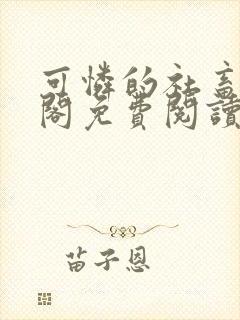 可憐的社畜
閣免費閱讀
苗子恩